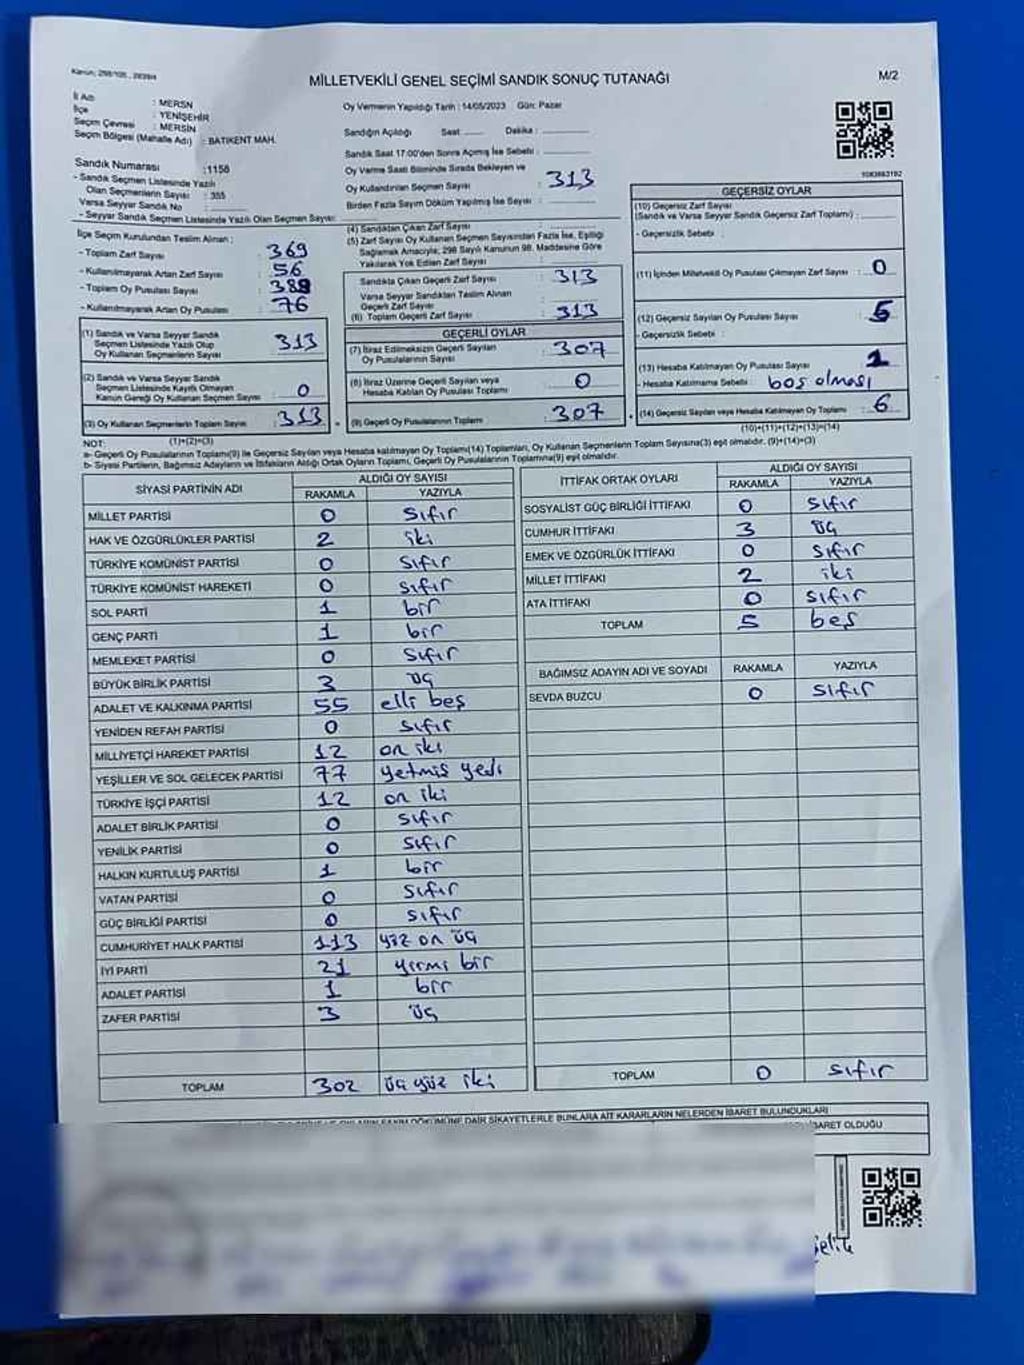 Kanun: 298/105, 2839/4
MİLLETVEKİLİ GENEL SEÇİMİ SANDIK SONUÇ TUTANAĞI
M/2
İl Adı : MERSN
İlçe : YENİŞEHİR
Seçim Çevresi : MERSİN
Seçim Bölgesi (Mahalle Adı) : BATIKENT MAH.
Sandık Numarası :1158
- Sandık Seçmen Listesinde Yazılı
Olan Seçmenlerin Sayısı : 355
Varsa Seyyar Sandık No :
- Seyyar Sandık Seçmen Listesinde Yazılı Olan Seçmen Sayısı:
Oy Vermenin Yapıldığı Tarih : 14/05/2023 Gün: Pazar
Sandığın Açıldığı Saat ...... Dakika : ..............
Sandık Saat 17:00'den Sonra Açılmış İse Sebebi : ..............
Oy Verme Saati Bitiminde Sırada Bekleyen ve
Oy Kullandırılan Seçmen Sayısı : 313
Birden Fazla Sayım Döküm Yapılmış İse Sayısı : ..............
İlçe Seçim Kurulundan Teslim Alınan ;
- Toplam Zarf Sayısı : 369
- Kullanılmayarak Artan Zarf Sayısı : 56
- Toplam Oy Pusulası Sayısı : 389
- Kullanılmayarak Artan Oy Pusulası : 76
(1) Sandık ve Varsa Seyyar Sandık
Seçmen Listesinde Yazılı Olup
Oy Kullanan Seçmenlerin Sayısı : 313
(2) Sandık ve Varsa Seyyar Sandık
Seçmen Listesinde Kayıtlı Olmayan
Kanun Gereği Oy Kullanan Seçmen Sayısı : 0
(3) Oy Kullanan Seçmenlerin Toplam Sayısı : 313
(1)+(2)=(3)
(4) Sandıktan Çıkan Zarf Sayısı :
(5) Zarf Sayısı Oy Kullanan Seçmen Sayısından Fazla İse, Eşitliği
Sağlamak Amacıyla; 298 Sayılı Kanunun 98. Maddesine Göre
Yakılarak Yok Edilen Zarf Sayısı :
Sandıkta Çıkan Geçerli Zarf Sayısı : 313
Varsa Seyyar Sandıktan Teslim Alınan
Geçerli Zarf Sayısı :
(6) Toplam Geçerli Zarf Sayısı : 313
GEÇERLİ OYLAR
(7) İtiraz Edilmeksizin Geçerli Sayılan
Oy Pusulalarının Sayısı : 307
(8) İtiraz Üzerine Geçerli Sayılan veya
Hesaba Katılan Oy Pusulaları Toplamı : 0
(9) Geçerli Oy Pusulalarının Toplamı : 307
1083663192
GEÇERSİZ OYLAR
(10) Geçersiz Zarf Sayısı
(Sandık ve Varsa Seyyar Sandık Geçersiz Zarf Toplamı) :
- Geçersizlik Sebebi :
(11) İçinden Milletvekili Oy Pusulası Çıkmayan Zarf Sayısı : 0
(12) Geçersiz Sayılan Oy Pusulası Sayısı : 5
- Geçersizlik Sebebi :
(13) Hesaba Katılmayan Oy Pusulası Sayısı : 1
- Hesaba Katılmama Sebebi : boş olması
(14) Geçersiz Sayılan veya Hesaba Katılmayan Oy Toplamı : 6
(10)+(11)+(12)+(13)=(14)
NOT:
a- Geçerli Oy Pusulalarının Toplamı(9) ile Geçersiz Sayılan veya Hesaba katılmayan Oy Toplamı(14) Toplamları, Oy Kullanan Seçmenlerin Toplam Sayısına(3) eşit olmalıdır. (9)+(14)=(3)
b- Siyasi Partilerin, Bağımsız Adayların ve İttifakların Aldığı Ortak Oyların Toplamı, Geçerli Oy Pusulalarının Toplamına(9) eşit olmalıdır.
SİYASİ PARTİNİN ADI ALDIĞI OY SAYISI
RAKAMLA YAZIYLA
MİLLET PARTİSİ 0 sıfır
HAK VE ÖZGÜRLÜKLER PARTİSİ 2 iki
TÜRKİYE KOMÜNİST PARTİSİ 0 sıfır
TÜRKİYE KOMÜNİST HAREKETİ 0 sıfır
SOL PARTİ 1 bir
GENÇ PARTİ 1 bir
MEMLEKET PARTİSİ 0 sıfır
BÜYÜK BİRLİK PARTİSİ 3 üç
ADALET VE KALKINMA PARTİSİ 55 elli beş
YENİDEN REFAH PARTİSİ 0 sıfır
MİLLİYETÇİ HAREKET PARTİSİ 12 on iki
YEŞİLLER VE SOL GELECEK PARTİSİ 77 yetmiş yedi
TÜRKİYE İŞÇİ PARTİSİ 12 on iki
ADALET BİRLİK PARTİSİ 0 sıfır
YENİLİK PARTİSİ 0 sıfır
HALKIN KURTULUŞ PARTİSİ 1 bir
VATAN PARTİSİ 0 sıfır
GÜÇ BİRLİĞİ PARTİSİ 0 sıfır
CUMHURİYET HALK PARTİSİ 113 yüz on üç
İYİ PARTİ 21 yirmi bir
ADALET PARTİSİ 1 bir
ZAFER PARTİSİ 3 üç
TOPLAM 302 üç yüz iki
İTTİFAK ORTAK OYLARI ALDIĞI OY SAYISI
RAKAMLA YAZIYLA
SOSYALİST GÜÇ BİRLİĞİ İTTİFAKI 0 sıfır
CUMHUR İTTİFAKI 3 üç
EMEK VE ÖZGÜRLÜK İTTİFAKI 0 sıfır
MİLLET İTTİFAKI 2 iki
ATA İTTİFAKI 0 sıfır
TOPLAM 5 beş
BAĞIMSIZ ADAYIN ADI VE SOYADI RAKAMLA YAZIYLA
SEVDA BUZCU 0 sıfır
TOPLAM 0 sıfır
DÖKÜMÜNE DAİR ŞİKAYETLERLE BUNLARA AİT KARARLARIN NELERDEN İBARET BULUNDUKLARI
İBARET OLDUĞU